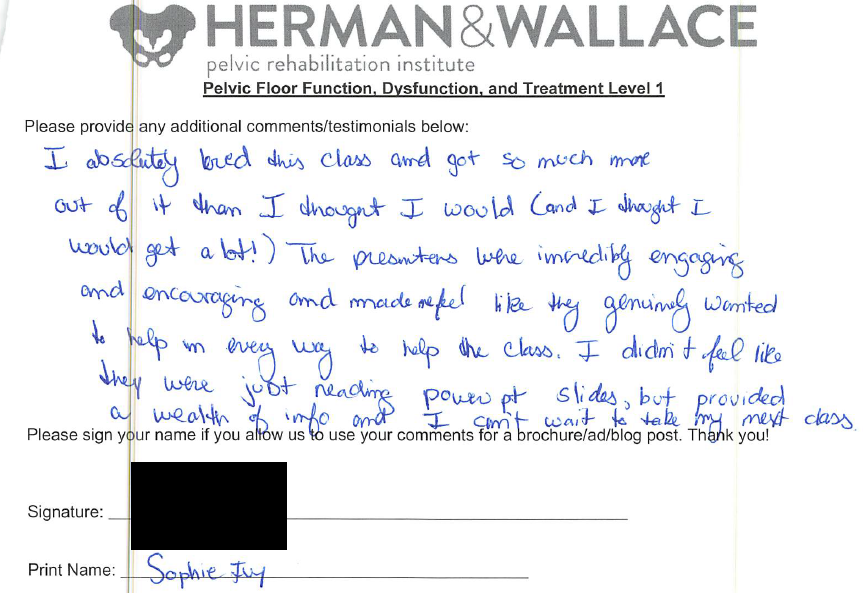 HERMAN&WALLACE
pelvic rehabilitation institute
Pelvic Floor Function, Dysfunction, and Treatment Level 1
Please provide any additional comments/testimonials below:
I absolutely loved this class and got so much more
out of it than I thought I would (and I thought I
would get a lot!) The presenters were incredibly engaging
and encouraging and made me feel like they genuinely wanted
to help in every way to help the class. I didn't feel like
they were just reading power pt slides, but provided
a wealth of info and I can't wait to take my next class.
Please sign your name if you allow us to use your comments for a brochure/ad/blog post. Thank you!
Signature:
Print Name: Sophie Ivy